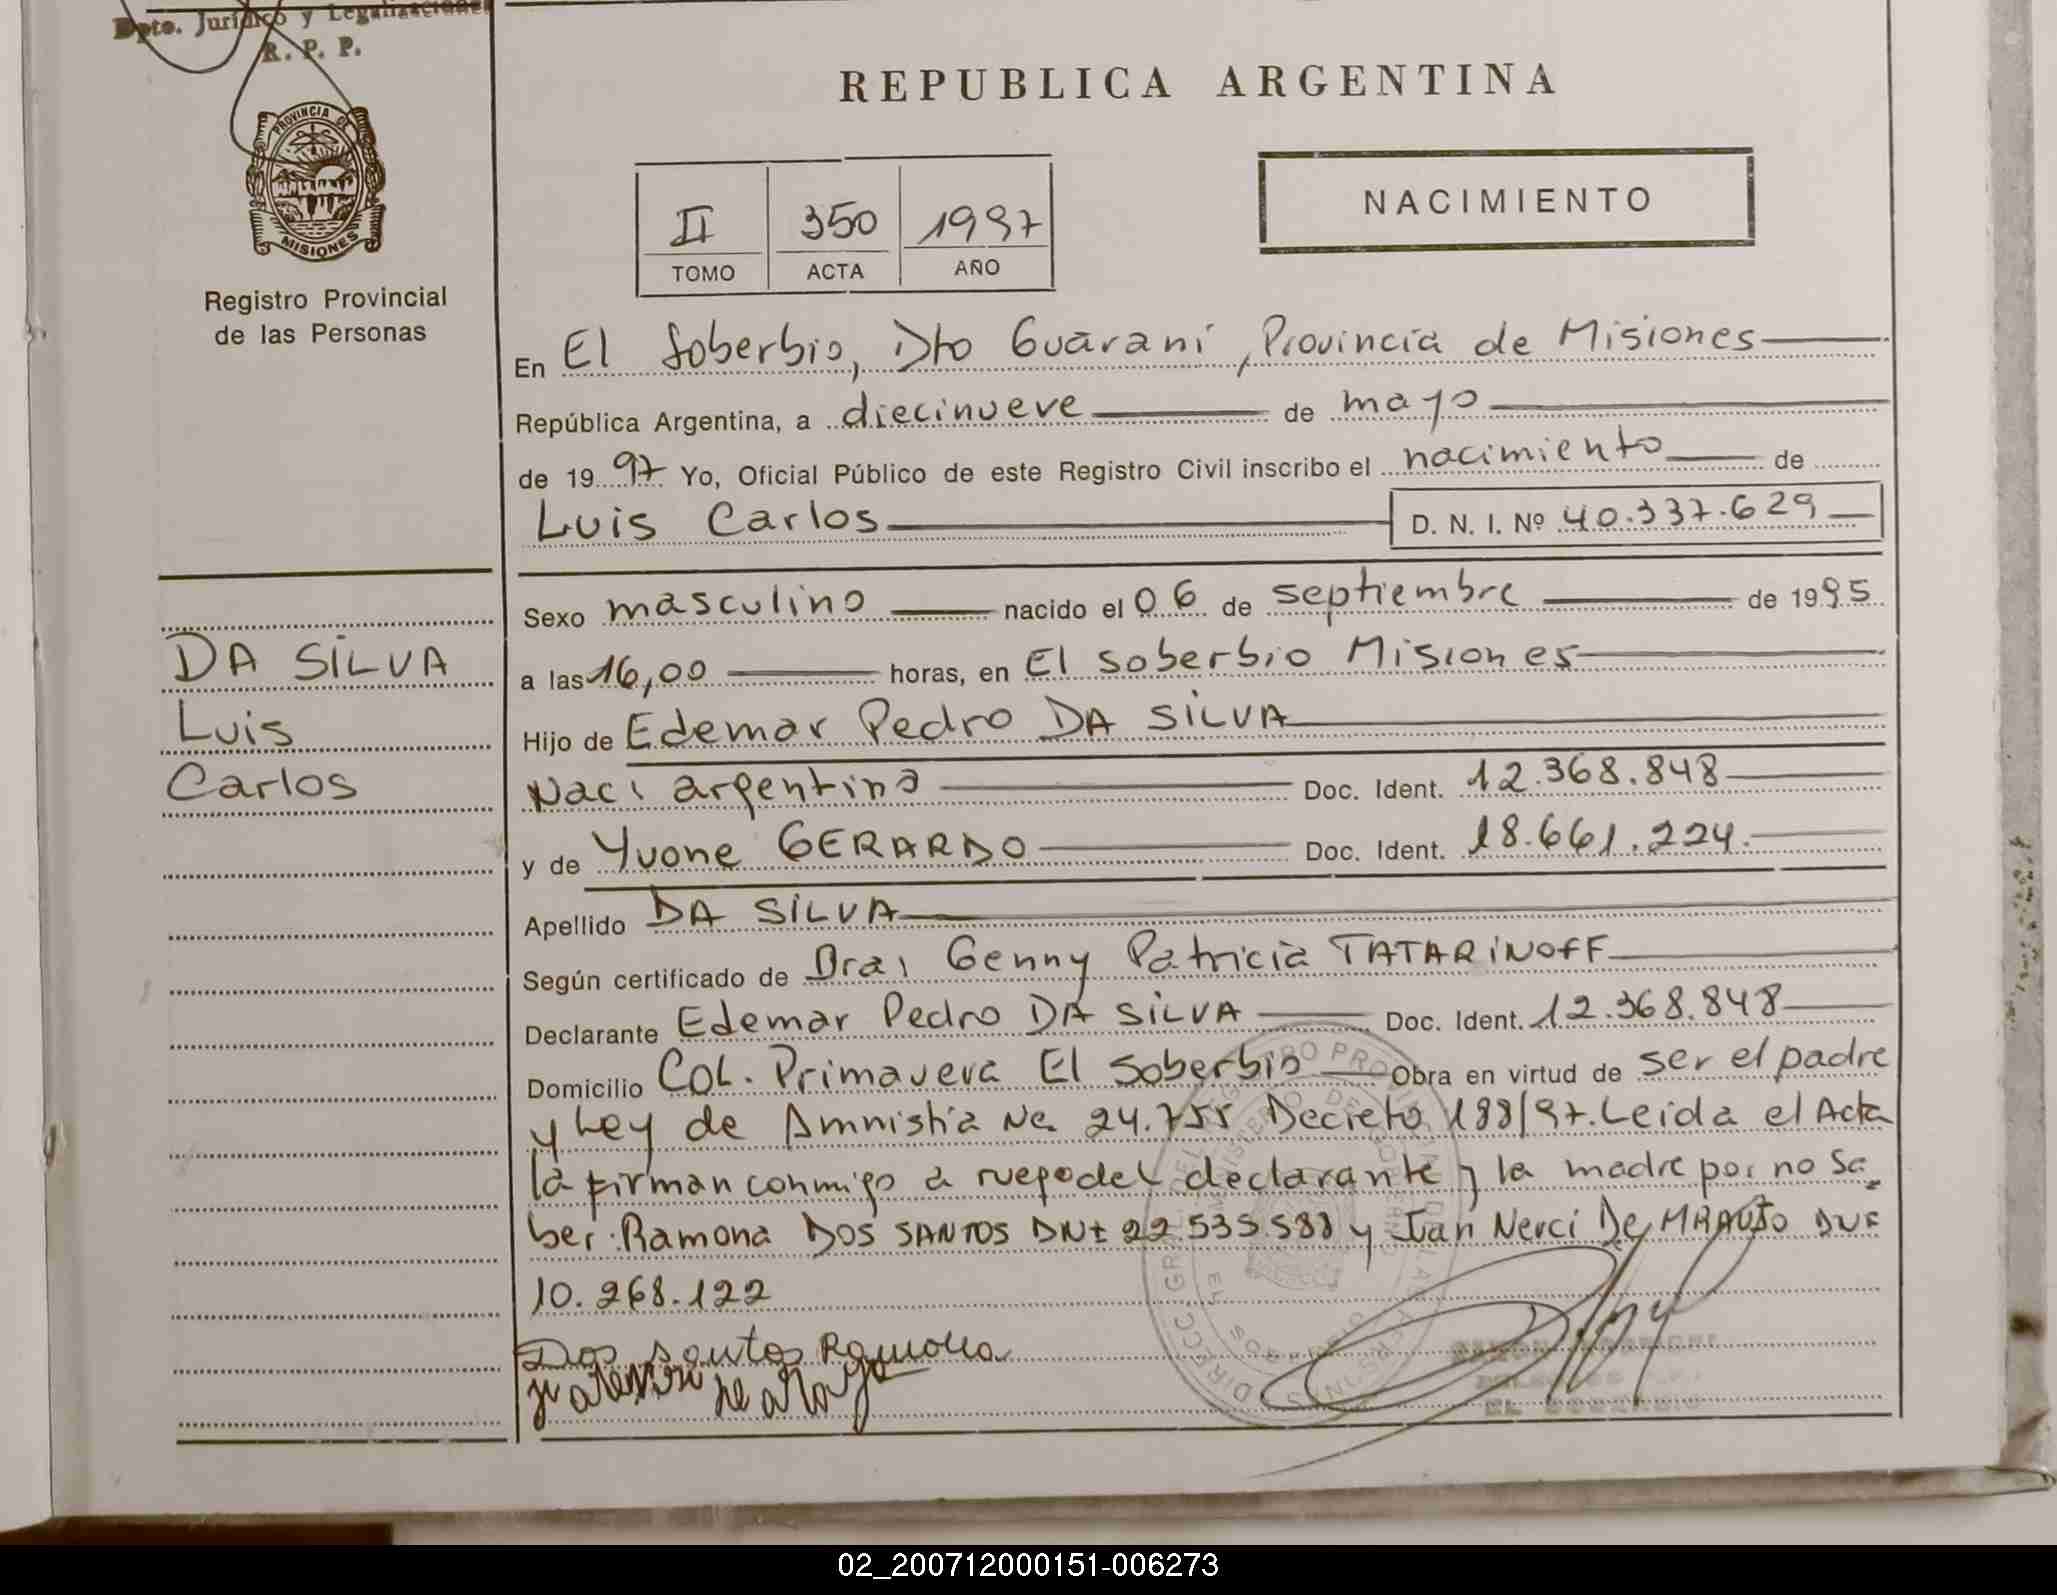 Dpto. Jurídico y Legalizaciones
R. P. P.
PROVINCIA DE
MISIONES
Registro Provincial
de las Personas
DA SILVA
Luis
Carlos
REPUBLICA ARGENTINA
II 350 1997
TOMO ACTA AÑO
NACIMIENTO
En El Soberbio, Dto Guaraní, Provincia de Misiones
República Argentina, a diecinueve de mayo
de 1997 Yo, Oficial Público de este Registro Civil inscribo el nacimiento de
Luis Carlos D. N. I. Nº 40.337.629
Sexo masculino nacido el 06 de septiembre de 1995
a las 16,00 horas, en El Soberbio Misiones
Hijo de Edemar Pedro DA SILVA
Naci argentina Doc. Ident. 12.368.848
y de Yvone GERARDO Doc. Ident. 18.661.224.
Apellido DA SILVA
Según certificado de Dra. Genny Patricia TATARINOFF
Declarante Edemar Pedro DA SILVA Doc. Ident. 12.368.848
Domicilio Col. Primavera El Soberbio Obra en virtud de ser el padre
y Ley de Amnistia No 24.755 Decreto 188/97. Leida el Acta
la firman conmigo a ruego del declarante y la madre por no sa
ber: Ramona DOS SANTOS DNI 22.535.588 y Juan Nerci De ARAUJO DNI
10.268.122
Dos Santos Ramona
EL SOBERBIO
02_200712000151-006273